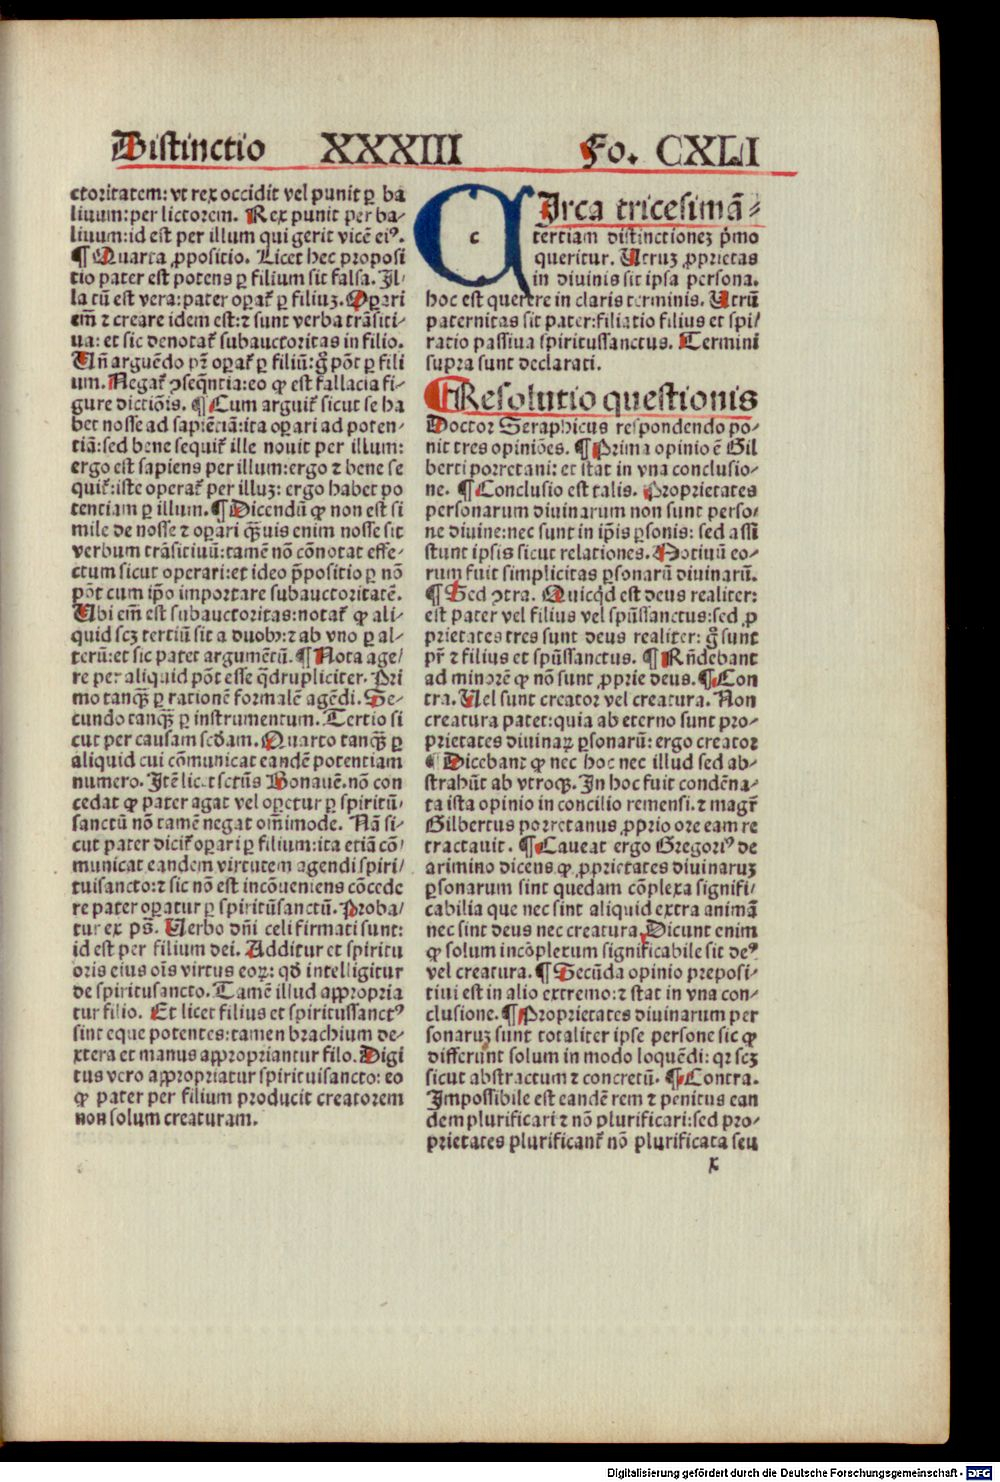 Distinctio XXXIII Fo. CXLI
ctoritatem: vt rex occidit vel punit ꝑ ba
liuum: per lictorem. Rex punit per ba⸗
liuum: id est per illum qui gerit vicē eiꝰ.
¶ Quarta ꝓpositio. Licet hec proposi
tio pater est potens ꝑ filium sit falsa. Il⸗
la tn̄ est vera: pater oꝑat᷑ ꝑ filiuꝫ. Oꝑari
em̄ ⁊ creare idem est: ⁊ sunt verba trāsiti⸗
ua: et sic denotat᷑ subauctoritas in filio.
Vn̄ arguēdo pr̄ oꝑat᷑ ꝑ filiū: gͦ pōt ꝑ fili
um. Negat᷑ ↄseqn̄tia: eo ꝙ est fallacia fi⸗
gure dictiōis. ¶ Cum arguit᷑ sicut se ha
bet nosse ad sapiētiā: ita oꝑari ad poten⸗
tiā: sed bene sequit᷑ ille nouit per illum:
ergo est sapiens per illum: ergo ⁊ bene se
quit᷑: iste operat᷑ per illuꝫ: ergo habet po
tentiam ꝑ illum. ¶ Dicendū ꝙ non est si
mile de nosse ⁊ oꝑari qͣ̄uis enim nosse sit
verbum trāsitiuū: tamē nō cōnotat effe⸗
ctum sicut operari: et ideo p̄positio ꝑ nō
pōt cum ip̄o importare subauctoritatē.
Vbi em̄ est subauctoritas: notat᷑ ꝙ ali⸗
quid scꝫ tertiū sit a duobꝰ: ⁊ ab vno ꝑ al⸗
terū: et sic patet argumētū. ¶ Nota age⸗
re per aliquid pōt esse qͣdrupliciter. Pri
mo tanqͣ̄ ꝑ rationē formalē agēdi. Se⸗
cundo tanqͣ̄ ꝑ instrumentum. Tertio si
cut per causam scd̄am. Quarto tanqͣ̄ ꝑ
aliquid cui cōmunicat eandē potentiam
numero. Itē licet sctūs Bonauē. nō con
cedat ꝙ pater agat vel oꝑetur ꝑ spiritū⸗
sanctū nō tamē negat om̄imode. Nā si⸗
cut pater dicit᷑ oꝑari ꝑ filium: ita etiā cō⸗
municat eandem virtutem agendi spiri⸗
tuisancto: ⁊ sic nō est incōueniens cōcede
re pater oꝑatur ꝑ spiritūsanctū. Proba⸗
tur ex ps̄. Verbo dn̄i celi firmati sunt:
id est per filium dei. Additur et spiritu
oris eius oīs virtus eoꝝ: qd̄ intelligitur
de spiritusancto. Tamē illud aꝓpropria
tur filio. Et licet filius et spiritussanctꝰ
sint eque potentes: tamen brachium de⸗
xtera et manus aꝓpropriantur filo. Digi
tus vero aꝓpropriatur spirituisancto: eo
ꝙ pater per filium producit creatorem
non solum creaturam.
CIrca tricesimā⸗
c
tertiam distinctioneꝫ pͥmo
queritur. Vtruꝫ ꝓprietas
in diuinis sit ipsa persona.
hoc est querere in claris terminis. Vtrū
paternitas sit pater: filiatio filius et spi⸗
ratio passiua spiritussanctus. Termini
supra sunt declarati.
¶ Resolutio questionis
Doctor Seraphicus respondendo po⸗
nit tres opiniōes. ¶ Prima opinio ē Gil
berti porretani: et stat in vna conclusio⸗
ne. ¶ Conclusio est talis. Proprietates
personarum diuinarum non sunt perso⸗
ne diuine: nec sunt in ip̄is ꝑsonis: sed assi
stunt ipsis sicut relationes. Motiuū eo⸗
rum fuit simplicitas ꝑsonarū diuinarū.
¶ Sed ↄtra. Quicqͥd est deus realiter:
est pater vel filius vel spūssanctus: sed ꝓ
prietates tres sunt deus realiter: gͦ sunt
pr̄ ⁊ filius et spūssanctus. ¶ Rn̄debant
ad minorē ꝙ nō sunt ꝓprie deus. ¶ Con
tra. Vel sunt creator vel creatura. Non
creatura patet: quia ab eterno sunt pro⸗
prietates diuinaꝝ ꝑsonarū: ergo creator
¶ Dicebant ꝙ nec hoc nec illud sed ab⸗
strahūt ab vtroqꝫ. In hoc fuit condēna⸗
ta ista opinio in concilio remensi. ⁊ magr̄
Gilbertus porretanus ꝓprio ore eam re
tractauit. ¶ Caueat ergo Gregoriꝰ de
arimino dicens ꝙ ꝓprietates diuinaruꝫ
ꝑsonarum sint quedam cōplexa signifi⸗
cabilia que nec sint aliquid extra animā
nec sint deus nec creatura. Dicunt enim
ꝙ solum incōplexum significabile sit deꝰ
vel creatura. ¶ Secūda opinio preposi⸗
tiui est in alio extremo: ⁊ stat in vna con⸗
clusione. ¶ Proprietates diuinarum per
sonaruꝫ sunt totaliter ipse persone sic ꝙ
differunt solum in modo loquēdi: qꝛ scꝫ
sicut abstractum ⁊ concretū. ¶ Contra.
Impossibile est eandē rem ⁊ penitus ean
dem plurificari ⁊ nō plurificari: sed pro⸗
prietates plurificant᷑ nō plurificata seu
x
Digitalisierung gefördert durch die Deutsche Forschungsgemeinschaft - DFG